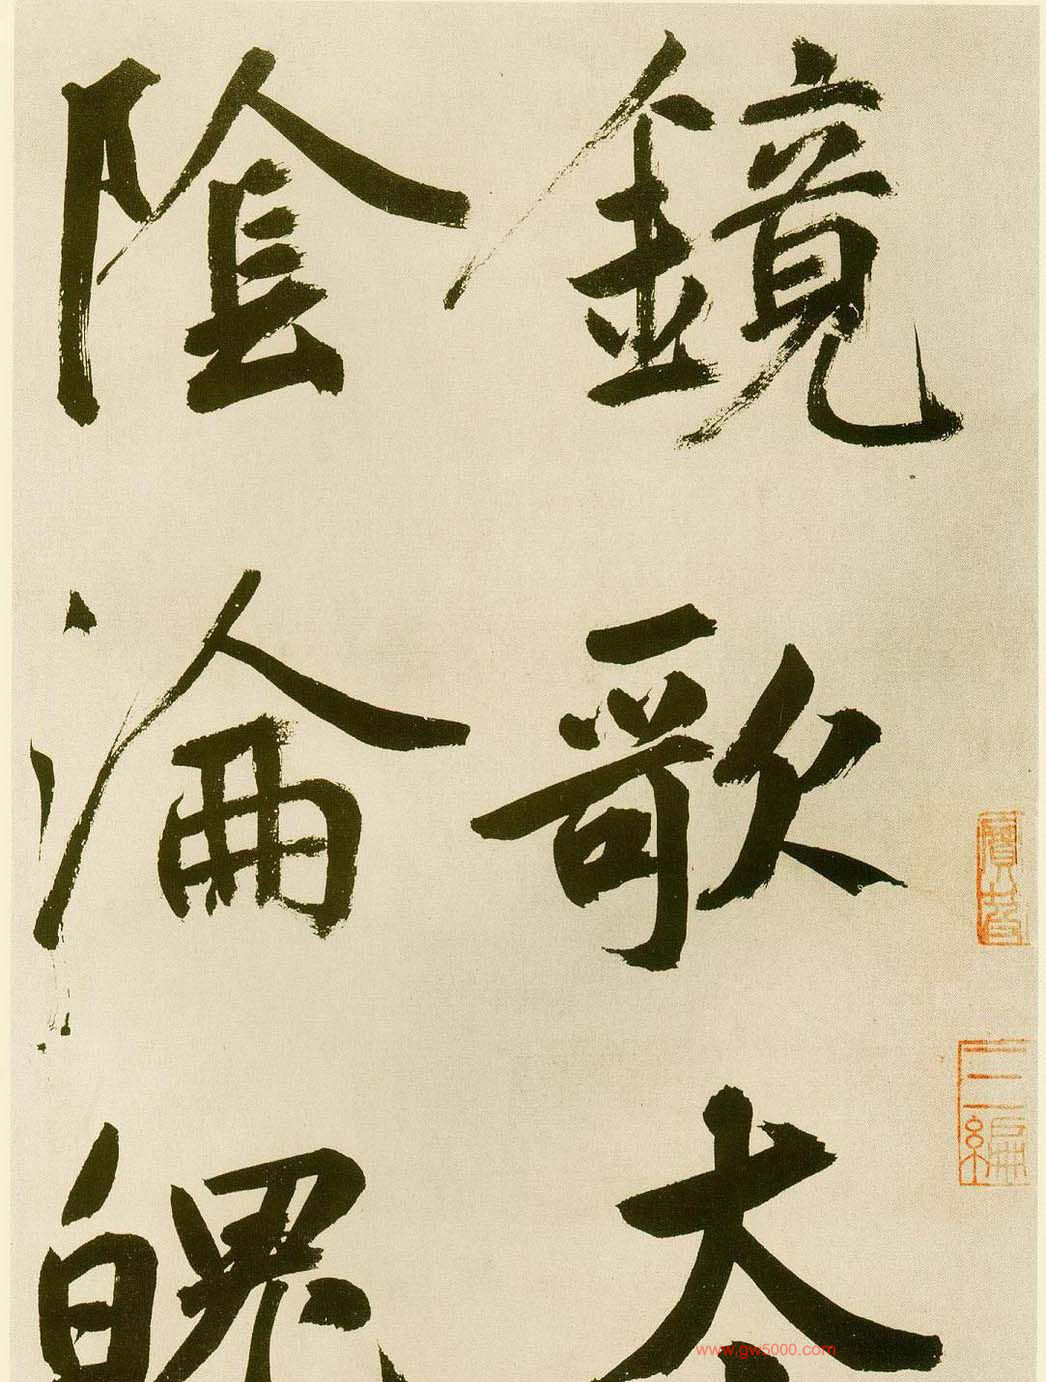 寶笈
三編
鏡歌太
陰淪魄
www.gw5000.com